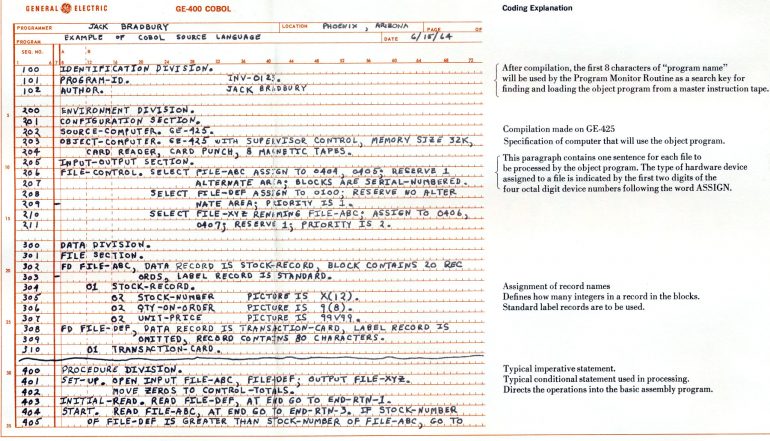 GENERAL ELECTRIC
GE-400 COBOL
Coding Explanation
PROGRAMMER JACK BRADBURY LOCATION PHOENIX, ARIZONA PAGE OF
PROGRAM EXAMPLE OF COBOL SOURCE LANGUAGE DATE 6/15/64
SEQ. NO. A B
1 6 7 8 12 16 20 24 28 32 36 40 44 48 52 56 60 64 68 72
100 IDENTIFICATION DIVISION.
101 PROGRAM-ID. INV-0123.
102 AUTHOR. JACK BRADBURY
After compilation, the first 8 characters of "program name"
will be used by the Program Monitor Routine as a search key for
finding and loading the object program from a master instruction tape.
200 ENVIRONMENT DIVISION.
201 CONFIGURATION SECTION.
202 SOURCE-COMPUTER. GE-425.
Compilation made on GE-425
203 OBJECT-COMPUTER. GE-425 WITH SUPERVISOR CONTROL, MEMORY SIZE 32K,
Specification of computer that will use the object program.
204 CARD READER, CARD PUNCH, 8 MAGNETIC TAPES.
205 INPUT-OUTPUT SECTION.
206 FILE-CONTROL. SELECT FILE-ABC ASSIGN TO 0404, 0405; RESERVE 1
207 ALTERNATE AREA; BLOCKS ARE SERIAL-NUMBERED.
208 SELECT FILE-DEF ASSIGN TO 0100; RESERVE NO ALTER
209 - NATE AREA; PRIORITY IS 1.
210 SELECT FILE-XYZ RENAMING FILE-ABC; ASSIGN TO 0406,
211 0407; RESERVE 1; PRIORITY IS 2.
This paragraph contains one sentence for each file to
be processed by the object program. The type of hardware device
assigned to a file is indicated by the first two digits of the
four octal digit device numbers following the word ASSIGN.
300 DATA DIVISION.
301 FILE SECTION.
302 FD FILE-ABC, DATA RECORD IS STOCK-RECORD, BLOCK CONTAINS 20 REC
303 - ORDS, LABEL RECORD IS STANDARD.
304 01 STOCK-RECORD.
Assignment of record names
305 02 STOCK-NUMBER PICTURE IS X(12).
Defines how many integers in a record in the blocks.
306 02 QTY-ON-ORDER PICTURE IS 9(8).
Standard label records are to be used.
307 02 UNIT-PRICE PICTURE IS 99V99.
308 FD FILE-DEF, DATA RECORD IS TRANSACTION-CARD, LABEL RECORD IS
309 OMITTED, RECORD CONTAINS 80 CHARACTERS.
310 01 TRANSACTION-CARD.
400 PROCEDURE DIVISION.
Typical imperative statement.
401 SET-UP. OPEN INPUT FILE-ABC, FILE-DEF; OUTPUT FILE-XYZ.
Typical conditional statement used in processing.
402 MOVE ZEROS TO CONTROL-TOTALS.
Directs the operations into the basic assembly program.
403 INITIAL-READ. READ FILE-DEF, AT END GO TO END-RTN-1.
404 START. READ FILE-ABC, AT END GO TO END-RTN-3. IF STOCK-NUMBER
405 OF FILE-DEF IS GREATER THAN STOCK-NUMBER OF FILE-ABC, GO TO